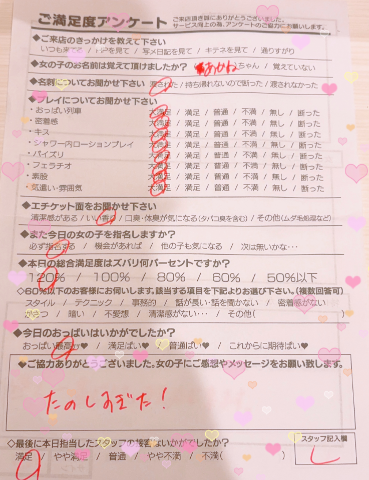 ご満足度アンケート
ご来店頂き誠にありがとうございました。
サービス向上の為、アンケートのご協力にお願いします。
◇ご来店のきっかけを教えて下さい
いつも来てる / を見て / 写メ日記を見て / キテネを見て / 通りすがり
◆女の子のお名前は覚えて頂けましたか? あかね ちゃん / 覚えていない
◆名刺についてお聞かせ下さい 渡された / 持ち帰れないので断った / 渡されなかった
◆プレイについてお聞かせ下さい
・おっぱい列車 大満足 / 満足 / 普通 / 不満 / 無し / 断った
・密着感 大満足 / 満足 / 普通 / 不満 / 無し / 断った
・キス 大満足 / 満足 / 普通 / 不満 / 無し / 断った
・シャワー内ローションプレイ 大満足 / 満足 / 普通 / 不満 / 無し / 断った
・パイズリ 大満足 / 満足 / 普通 / 不満 / 無し / 断った
・フェラチオ 大満足 / 満足 / 普通 / 不満 / 無し / 断った
・素股 大満足 / 満足 / 普通 / 不満 / 無し / 断った
・気遣い・雰囲気 大満足 / 満足 / 普通 / 不満 / 無し / 断った
◆エチケット面をお聞かせ下さい
清潔感がある / いい香り / 口臭・体臭が気になる(タバコ臭を含む) / その他(ムダ毛処理など)
◆また今日の女の子を指名しますか?
必ず指名する / 機会があれば / 他の子も気になる / 次は無いかな…
◆本日の総合満足度はズバリ何パーセントですか?
120% / 100% / 80% / 60% / 50%以下
◇60%以下のお客様にお伺いします。該当する項目を下記よりお選び下さい。(複数回答可)
スタイル / テクニック / 事務的 / 話が長い・話を聞かない / 密着感がない
/ 暗い / 不愛想 / 清潔感がない… / その他( )
◆今日のおっぱいはいかがでしたか?
おっぱい最高♥ / 満足ぱい♥ / 普通ぱい♥ / これからに期待ぱい♥
◆ご協力ありがとうございました。女の子にご感想やメッセージをお願い致します。
たのしすぎた!
◇最後に本日担当したスタッフの接客はいかがでしたか?
満足 / やや満足 / 普通 / やや不満 / 不満( )
スタッフ記入欄